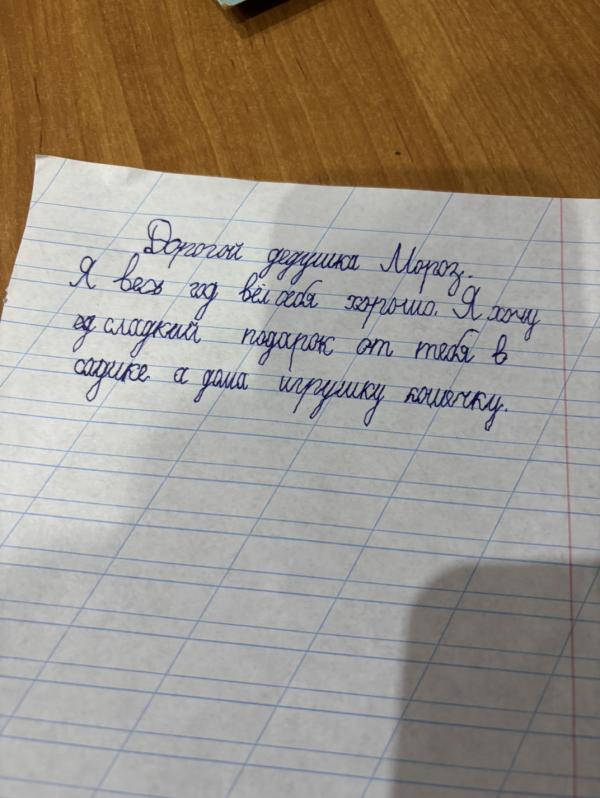 Дорогой дедушка Мороз.
Я весь год вёл себя хорошо. Я хочу
сладкий подарок от тебя в
садике а дома игрушку кошечку.